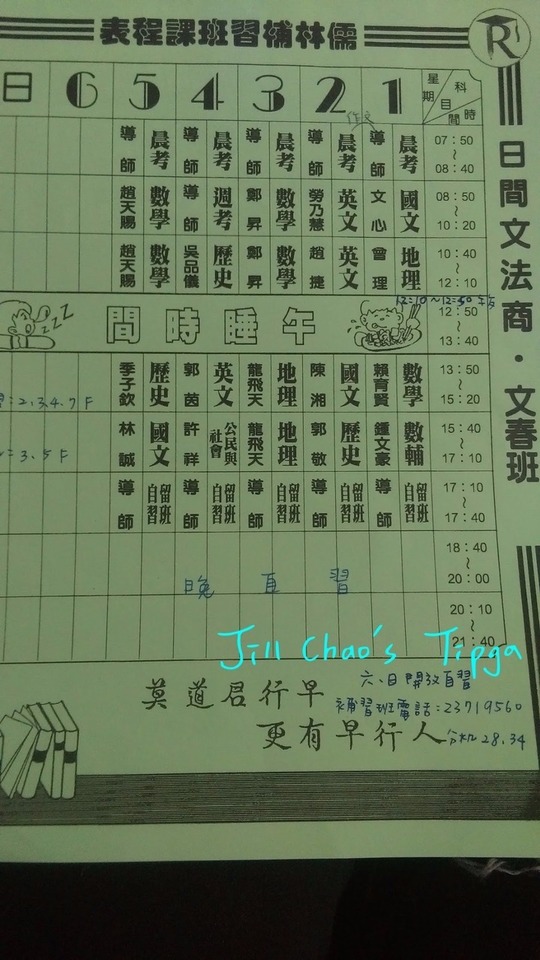 儒林補習班課程表
R
日間文法商・文春班
科目 時間 星期 1 2 3 4 5 6 日
07:50~08:40 晨考 導師 晨考 導師 晨考 導師 晨考 導師 晨考 導師
08:50~10:20 國文 文心 英文 勞乃慧 數學 鄭昇 週考 導師 數學 趙天賜
10:40~12:10 地理 曾理 英文 趙捷 數學 鄭昇 歷史 吳品儀 數學 趙天賜
12:10~12:50
12:50~13:40 午睡時間 ZZZ
13:50~15:20 數學 賴育賢 國文 陳湘 地理 龍飛天 英文 郭茵 歷史 季子欽
2.3.4.7F
15:40~17:10 數輔 鍾文豪 歷史 郭敬 地理 龍飛天 公民與社會 許祥 國文 林誠
3.5F
17:10~17:40 留班自習 導師 留班自習 導師 留班自習 導師 留班自習 導師 留班自習 導師
18:40~20:00
晚自習
20:10~21:40
Jill Chao's Tipga
六、日開放自習
補習班電話:23719560
分機28.34
莫道君行早
更有早行人